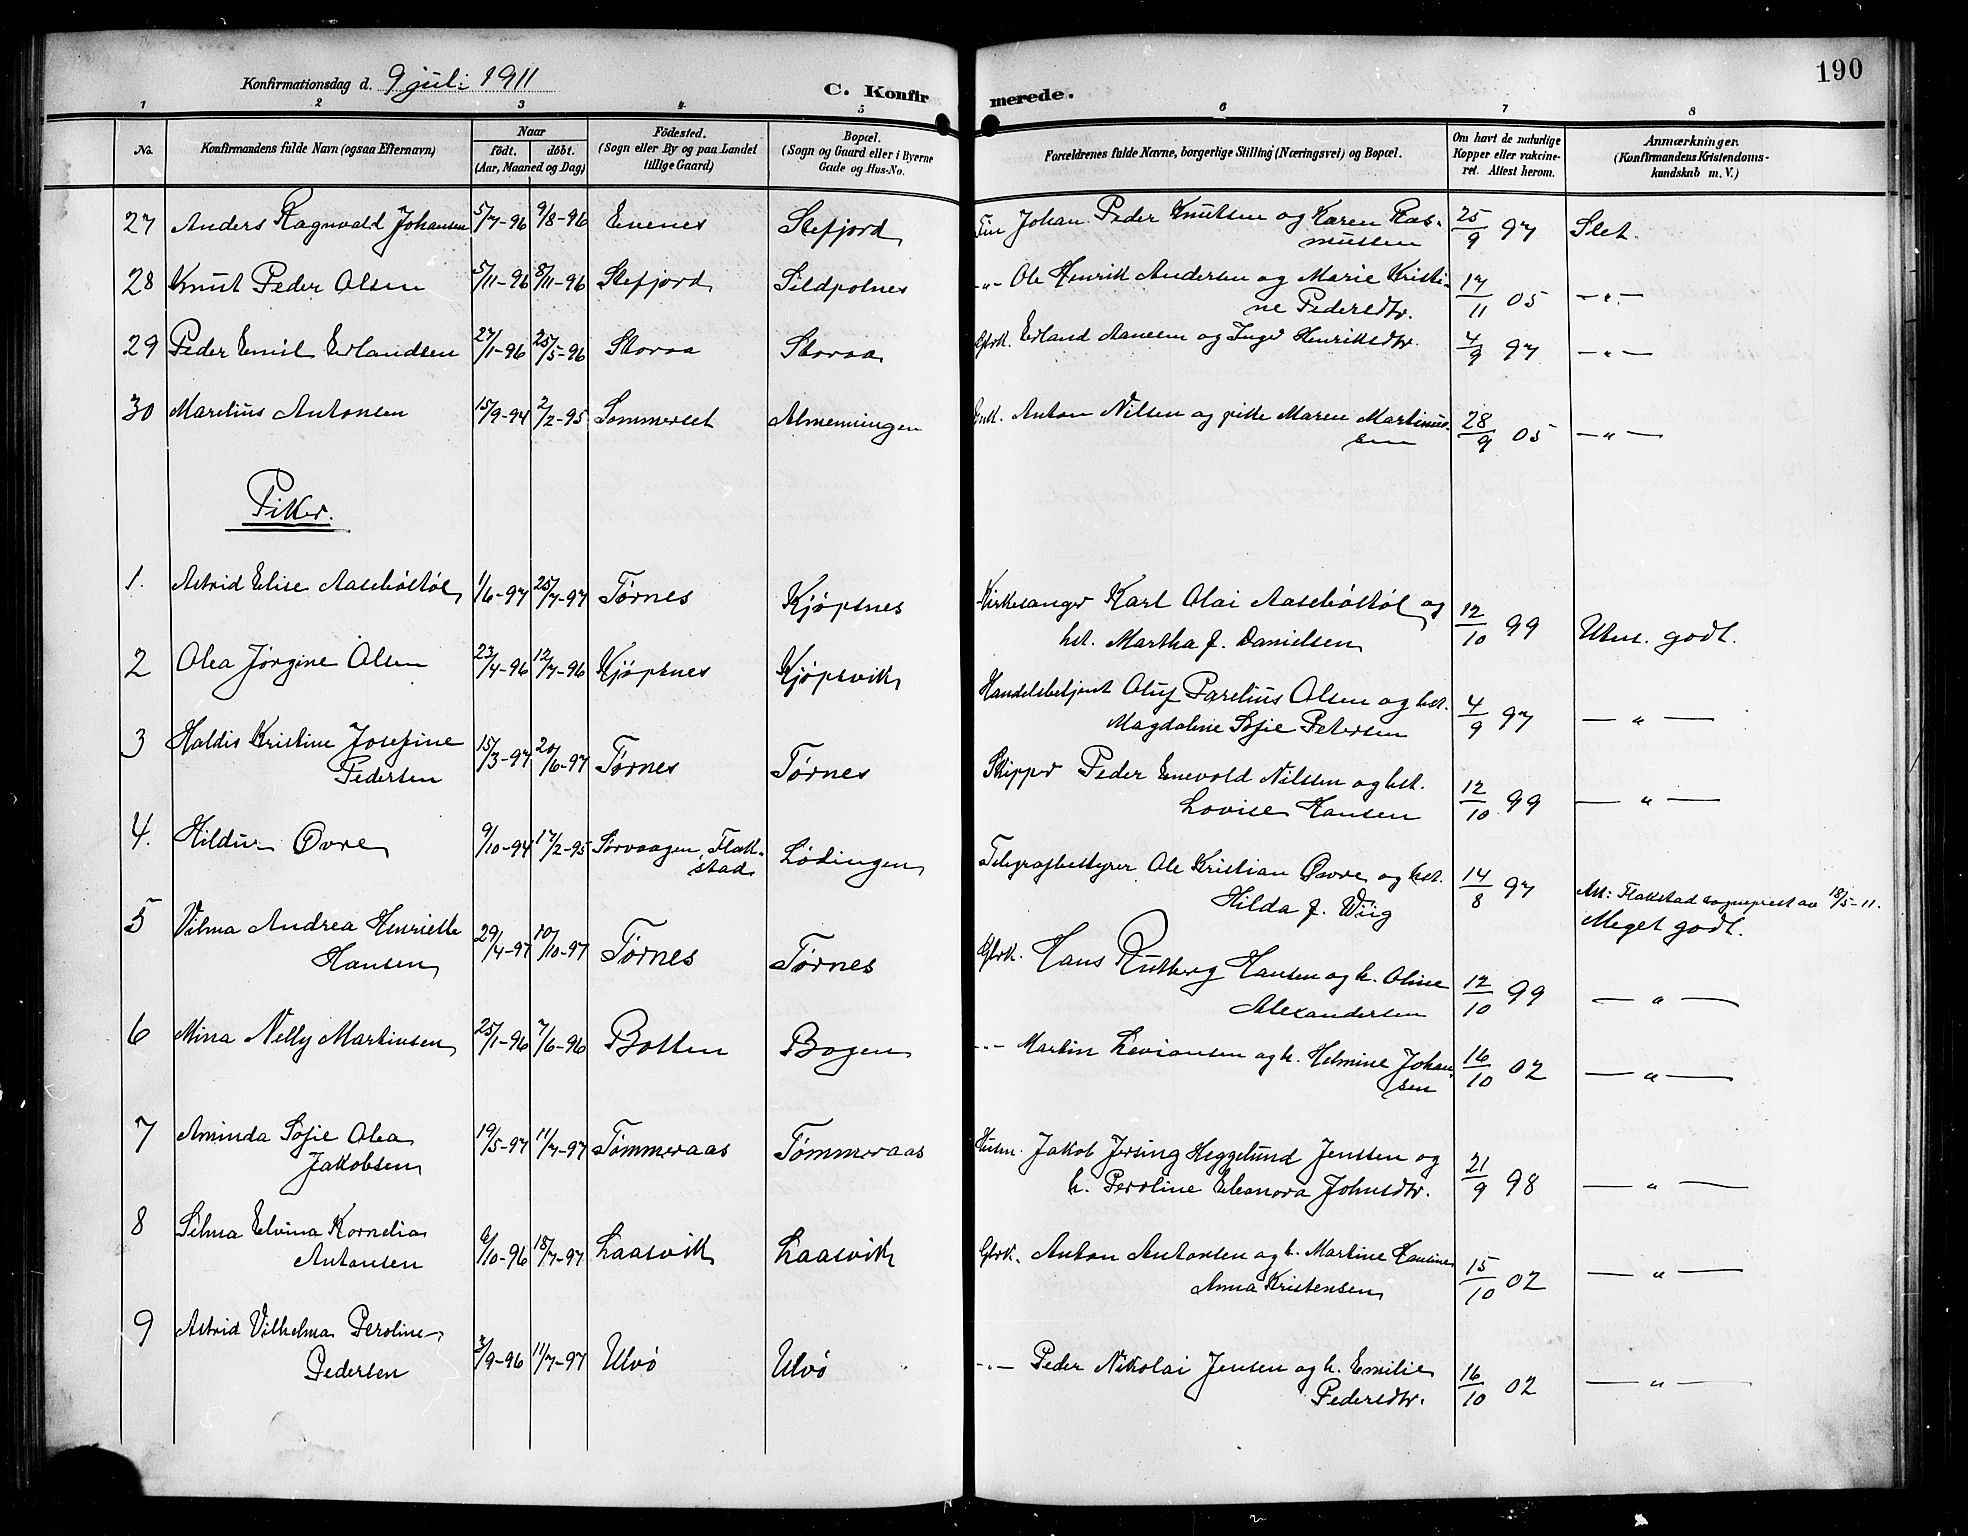 190
Konfirmationsdag d. 9 juli 1911
C. Konfirmerede.
1 2 3 4 5 6 7 8
No.
Konfirmandens fulde Navn (ogsaa Efternavn)
Naar
födt. döbt.
(Aar, Maaned og Dag)
Födested.
(Sogn eller By og paa Landet
tillige Gaard)
Bopæl.
(Sogn og Gaard eller i Byerne
Gade og Hus-No.
Forældrenes fulde Navne, borgerlige Stilling (Næringsvei) og Bopæl.
Om havt de naturlige
Kopper eller vakcine-
ret. Attest herom.
Anmærkninger.
(Konfirmandens Kristendoms-
kundskab m. V.)
27 Anders Ragnvald Johansen 5/7-96 9/8-96 Evenes Stefjord Fin Johan Peder Knutsen og Karen Ras- 25/9 97 Slet.
mussen
28 Knut Peder Olsen 5/11-96 8/11-96 Stefjord Sildpolnes -"- Ole Henrik Andersen og Marie Kristi- 17/11 05 -"-
ne Pedersdtr.
29 Peder Emil Erlandsen 27/1-96 25/5-96 Storaa Storaa Gbrk. Erland Aanesen og Inger Henriksdtr. 4/9 97 -"-
30 Marelius Antonsen 15/9-94 2/2-95 Sommerset Almenningen Enk. Anton Nilsen og pike Maren Martinus- 28/9 05 -"-
sen
Piker.
1. Astrid Elise Aasebøstøl 1/6-97 25/7-97 Tørnes Kjøpsnes Kirkesanger Karl Olai Aasebøstøl og 12/10 99 Utm. godt.
hst. Martha J. Danielsen
2 Olea Jørgine Olsen 23/4-96 12/7-96 Kjøpsnes Kjøpsvik Handelsbetjent Oluf Parelius Olsen og hst. 4/9 97 -"-
Magdalene Sofie Petersen
3 Haldis Kristine Josefine 15/3-97 20/6-97 Tørnes Tørnes Skipper Peder Enevold Nilsen og hst. 12/10 99 -"-
Pedersen Lovise Hansen
4. Hildur Øvre 9/10-94 17/2-95 Sørvaagen, Flak- Lødingen Telegrafbestyrer Ole Kristian Øvre og hst. 14/8 97 Att: Flakstad sogneprest av 18/5-11.
stad Hilda J. Wiig Meget godt.
5 Vilma Andrea Henriette 29/4-97 10/10-97 Tørnes Tørnes Gbrk. Hans Rutberg Hansen og h. Oline 12/10 99 -"-
Hansen Alexandersen
6 Mina Nelly Martinsen 25/1-96 7/6-96 Botten Bogen -"- Martin Leviansen og h. Helmine Johan- 16/10 02 -"-
sen
7 Aminda Sofie Olea 19/5-97 11/7-97 Tømmeraas Tømmeraas Husm. Jakob Jersing Heggelund Jenssen og 21/9 98 -"-
Jakobsen h. Peroline Eleonora Johnsdtr.
8 Silma Elvina Kornelia 6/10-96 18/7-97 Laasvik Laasvik Gbrk. Anton Antonsen og h. Martine Hansine 15/10 02 -"-
Antonsen Anna Kristensen
9 Astrid Vilhelma Peroline 3/9-96 11/7-97 Ulvø Ulvø -"- Peder Nikolai Jensen og h. Emilie 16/10 02 -"-
Pedersen Pedersdtr.